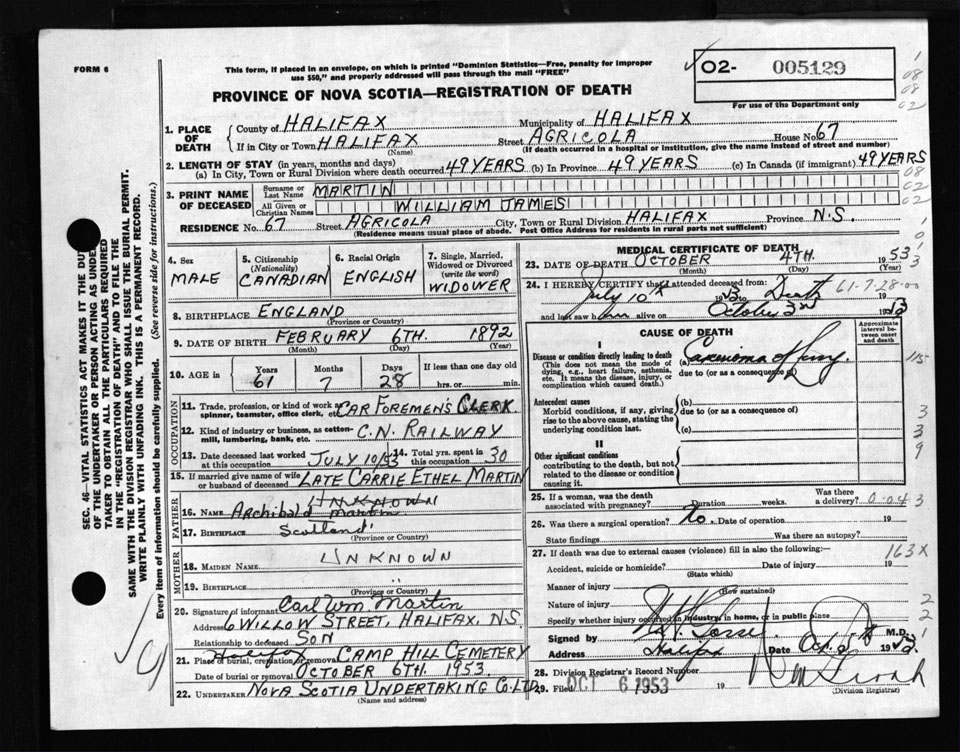 FORM 6
This form, if placed in an envelope, on which is printed "Dominion Statistics—Free, penalty for improper
use $50," and properly addressed will pass through the mail "FREE"
PROVINCE OF NOVA SCOTIA—REGISTRATION OF DEATH
O2- 005129
For use of the Department only
SEC. 46—VITAL STATISTICS ACT MAKES IT THE DUTY
OF THE UNDERTAKER OR PERSON ACTING AS UNDER
TAKER TO OBTAIN ALL THE PARTICULARS REQUIRED
IN THE "REGISTRATION OF DEATH" AND TO FILE THE
SAME WITH THE DIVISION REGISTRAR WHO SHALL ISSUE THE BURIAL PERMIT.
WRITE PLAINLY WITH UNFADING INK. THIS IS A PERMANENT RECORD.
Every item of information should be carefully supplied. (See reverse side for instructions.)
1. PLACE OF DEATH
County of HALIFAX Municipality of HALIFAX
If in City or Town HALIFAX Street AGRICOLA House No. 67
(Name) (If death occurred in a hospital or institution, give the name instead of street and number)
2. LENGTH OF STAY (in years, months and days)
(a) In City, Town or Rural Division where death occurred 49 YEARS (b) In Province 49 YEARS (c) In Canada (if immigrant) 49 YEARS
3. PRINT NAME OF DECEASED
Surname or Last Name MARTIN
All Given or Christian Names WILLIAM JAMES
RESIDENCE No. 67 Street AGRICOLA City, Town or Rural Division HALIFAX Province N.S.
(Residence means usual place of abode. Post Office Address for residents in rural parts not sufficient)
4. Sex
MALE
5. Citizenship
(Nationality)
CANADIAN
6. Racial Origin
ENGLISH
7. Single, Married,
Widowed or Divorced
(write the word)
WIDOWER
8. BIRTHPLACE ENGLAND
(Province or Country)
9. DATE OF BIRTH FEBRUARY 6TH. 1892
(Month) (Day) (Year)
10. AGE in Years Months Days If less than one day old
61 7 28 hrs. or min.
OCCUPATION
11. Trade, profession, or kind of work as
spinner, teamster, office clerk, etc. CAR FOREMEN'S CLERK
12. Kind of industry or business, as cotton-
mill, lumbering, bank, etc. C.N. RAILWAY
13. Date deceased last worked
at this occupation JULY 10/53
14. Total yrs. spent in
this occupation 30
15. If married give name of wife
or husband of deceased LATE CARRIE ETHEL MARTIN
FATHER
UNKNOWN
16. NAME Archibald Martin
17. BIRTHPLACE Scotland
(Province or Country)
MOTHER
18. MAIDEN NAME UNKNOWN
19. BIRTHPLACE "
(Province or Country)
20. Signature of informant Carl Wm. Martin
Address 6 WILLOW STREET, HALIFAX, N.S.
Relationship to deceased SON
Halifax
21. Place of burial, cremation or removal CAMP HILL CEMETERY
Date of burial or removal OCTOBER 6TH. 1953
22. UNDERTAKER NOVA SCOTIA UNDERTAKING CO. LTD
(Name and address)
MEDICAL CERTIFICATE OF DEATH
23. DATE OF DEATH OCTOBER 4TH. 1953
(Month) (Day) (Year)
24. I HEREBY CERTIFY that I attended deceased from:
61-7-28-00
July 10th 1953 to Death 19
and last saw him alive on October 3rd 1953
CAUSE OF DEATH
Approximate interval between onset and death
I
Disease or condition directly leading to death
(This does not mean the mode of
dying, e.g., heart failure, asthenia,
etc. It means the disease, injury, or
complication which caused death.)
(a) Carcinoma of Lung
due to (or as a consequence of)
Antecedent causes
Morbid conditions, if any, giving
rise to the above cause, stating the
underlying condition last.
(b)
due to (or as a consequence of)
(c)
II
Other significant conditions
contributing to the death, but not
related to the disease or condition
causing it.
25. If a woman, was the death
associated with pregnancy? Duration weeks. Was there a delivery? 0-04
26. Was there a surgical operation? No. Date of operation 19
State findings Was there an autopsy?
27. If death was due to external causes (violence) fill in also the following:—
163X
Accident, suicide or homicide? Date of injury 19
(State which)
Manner of injury
(How sustained)
Nature of injury
Specify whether injury occurred in industry, in home, or in public place
Signed by M.D.
Address Halifax Date Oct. 5th 1953
28. Division Registrar's Record Number
29. Filed OCT 6 1953 19
(Division Registrar)